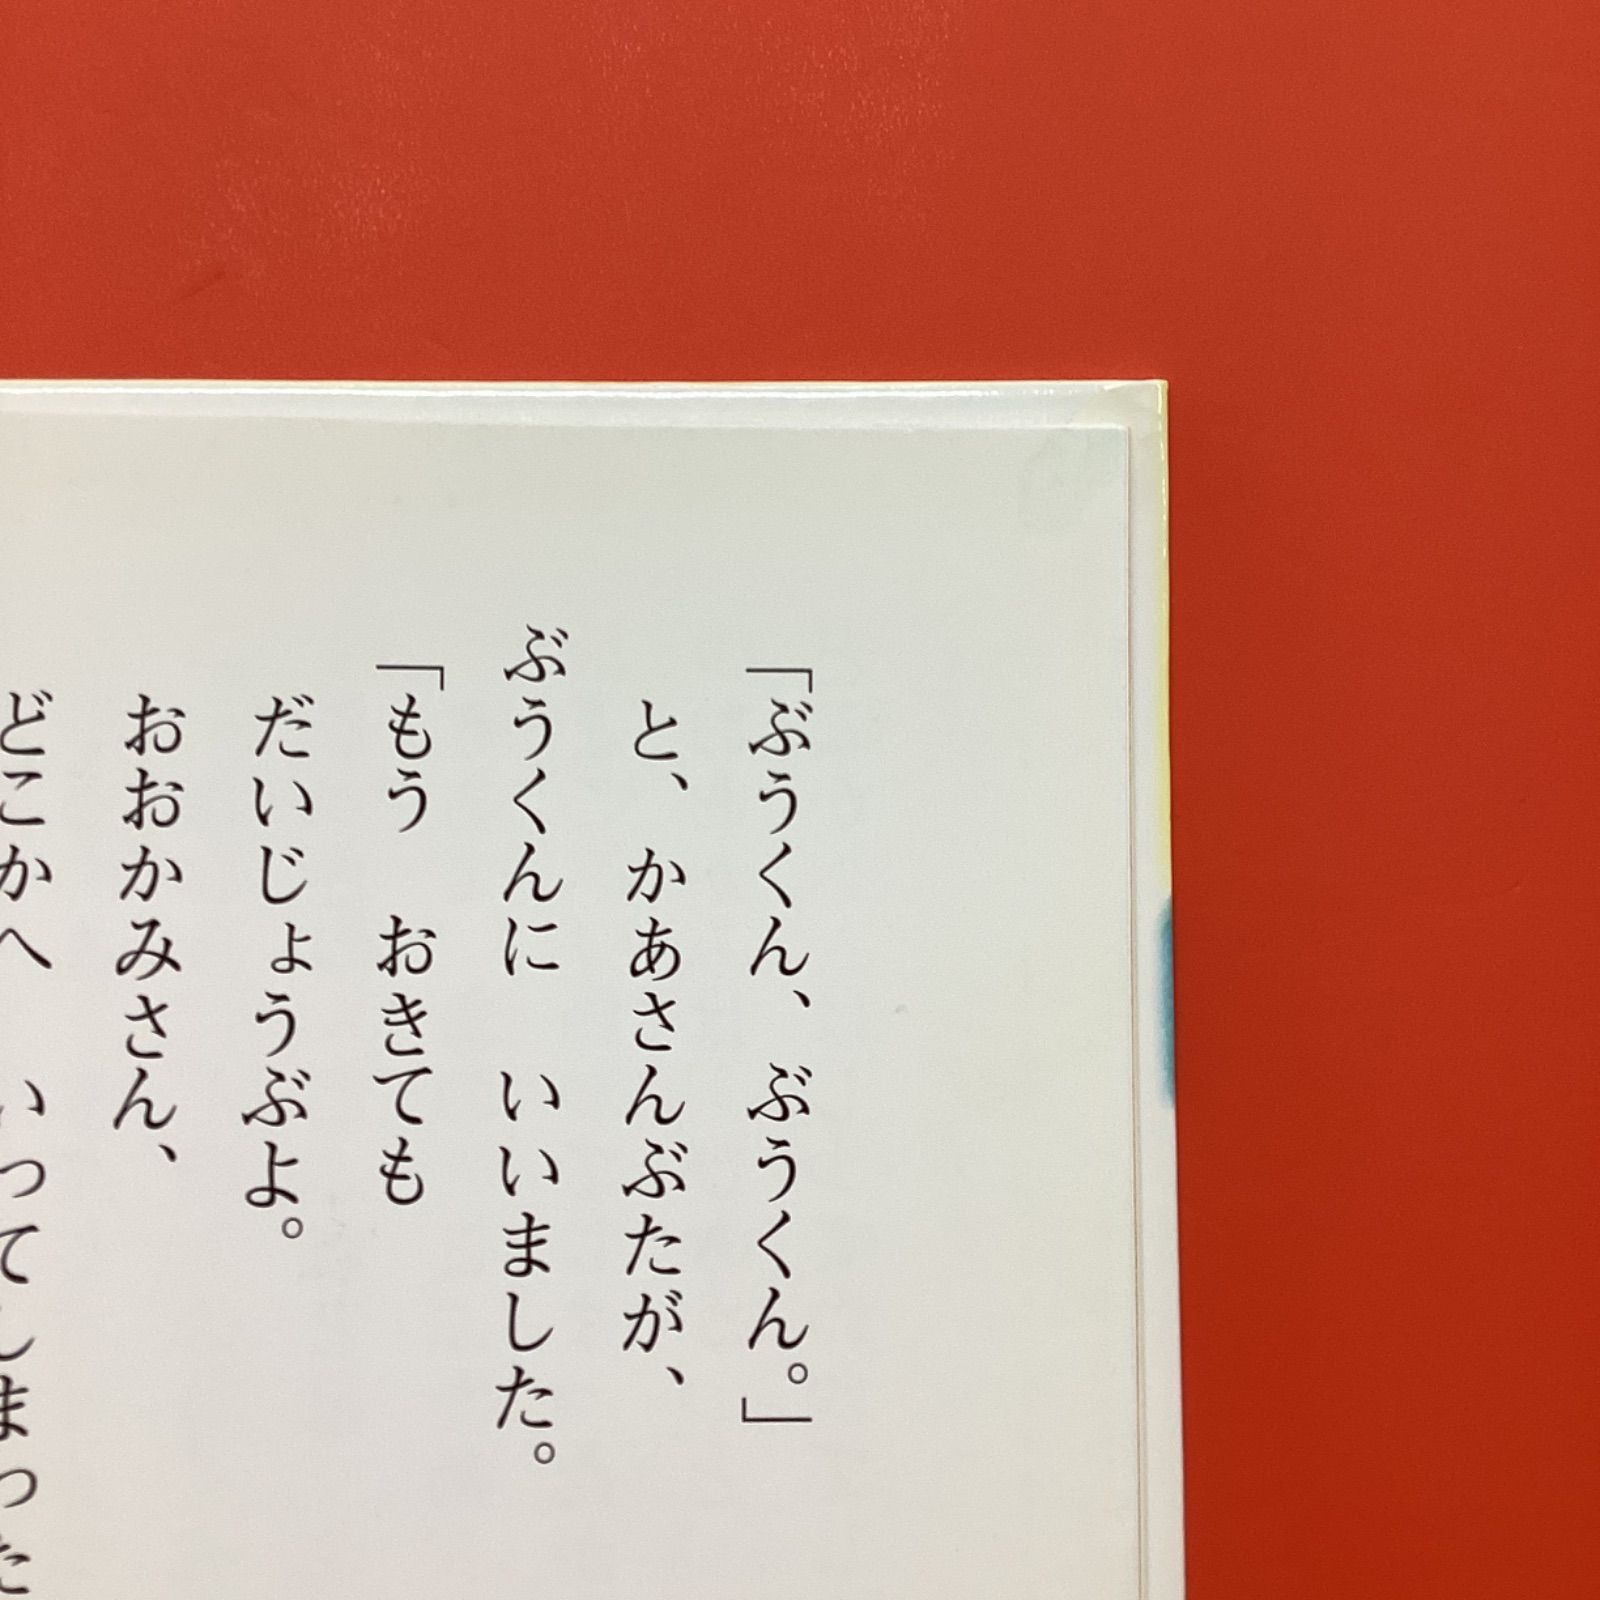 「ぶうくん、ぶうくん。」
と、かあさんぶたが、
ぶうくんに　いいました。
「もう　おきても
だいじょうぶよ。
おおかみさん、
どこかへ　いってしまった